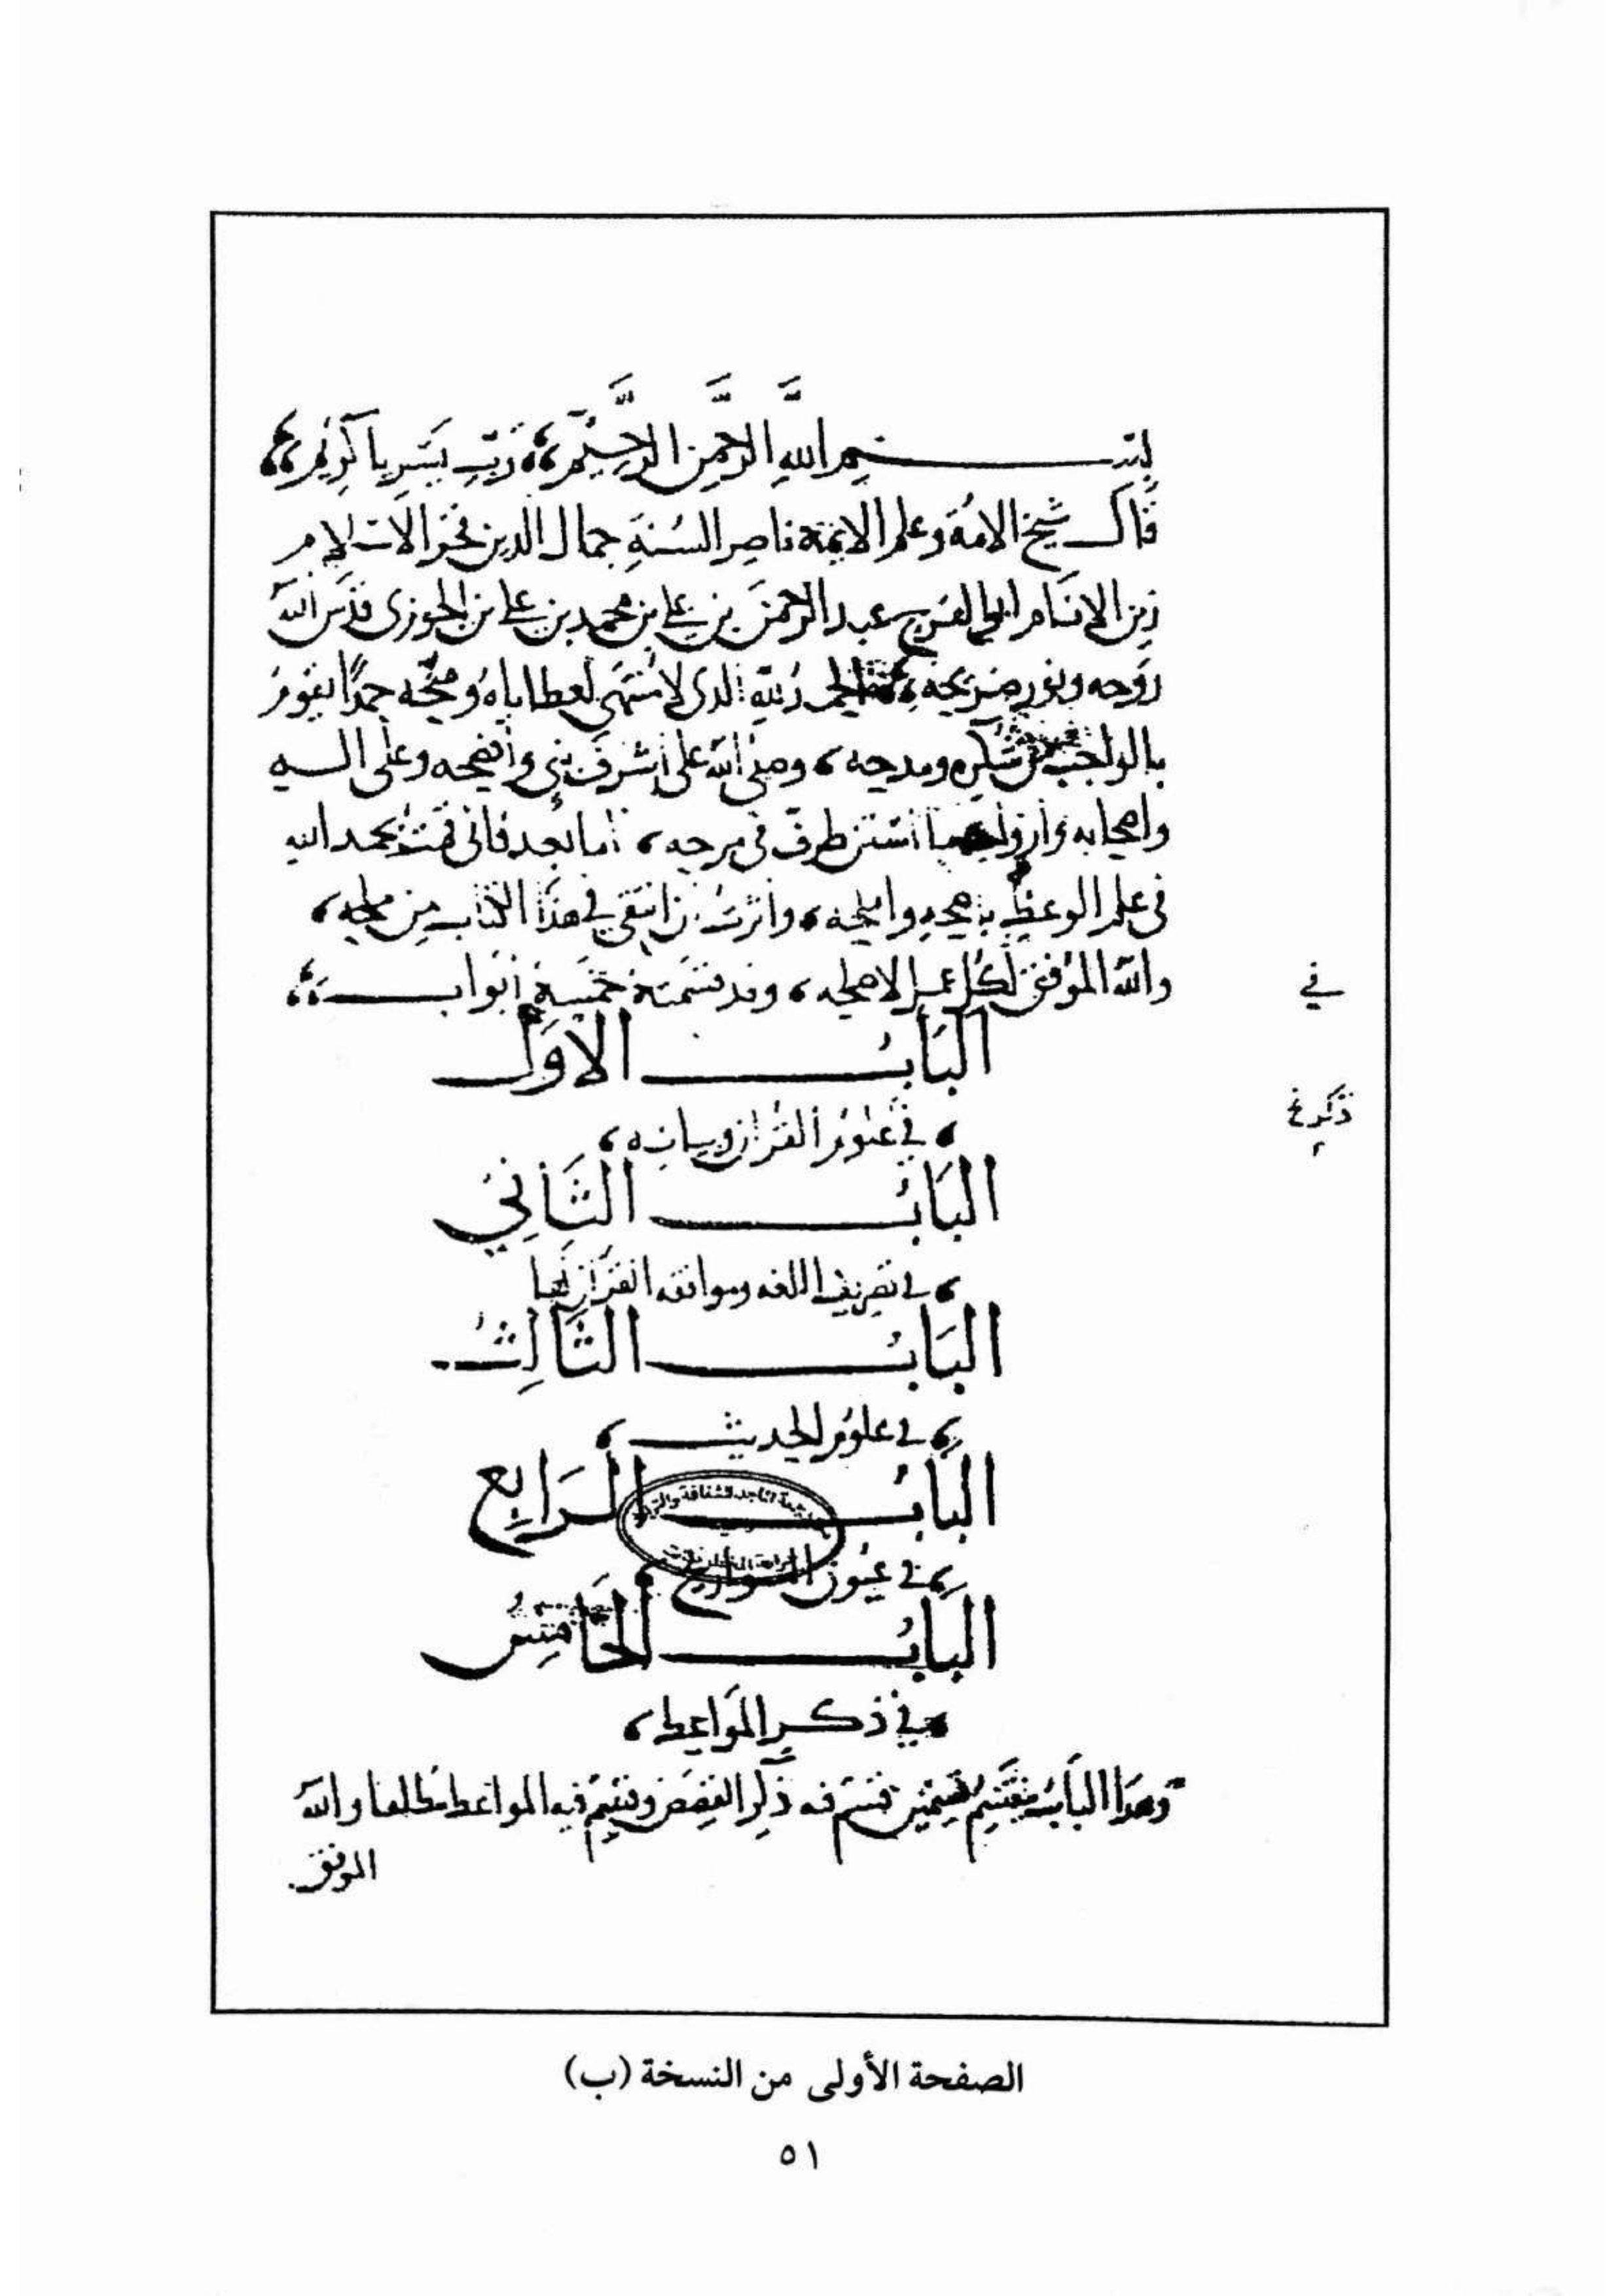 بسم الله الرحمن الرحيم، رب يسر يا كريم،
قال شيخ الامة وعلم الايمة ناصر السنة جمال الدين فخر الاسلام
زين الانام ابي الفرج عبد الرحمن بن علي بن محمد بن علي بن الجوزي قدس الله
روحه ونور ضريحه، الحمد لله الذي لا منتهى لعطاياه ومنحه حمدا يقوم
بالواجب من شكره ومدحه، وصلى الله على اشرف نبي وافصحه وعلى اله
واصحابه وازواجه ما استن طرف في مرحه، اما بعد فاني قمت بحمد الله
في علم الوعظ باصحه واملحه، واثرت ان انتقي في هذا الكتاب من ملحه،
والله الموفق لكل عمل لاصلحه، وقد قسمته خمسة ابواب
في
الباب الاول
ذكر
في علوم القران وبيانه،
الباب الثاني
في تصريف اللغه وموافقه القران لها
الباب الثالث
في علوم الحديث،
الباب الرابع
في عيون التواريخ
الباب الخامس
في ذكر المواعظ،
وهذا الباب ينقسم قسمين قسم فيه ذكر القصص وقسم فيه المواعظ مطلقا والله
الموفق.
الصفحة الأولى من النسخة (ب)
٥١